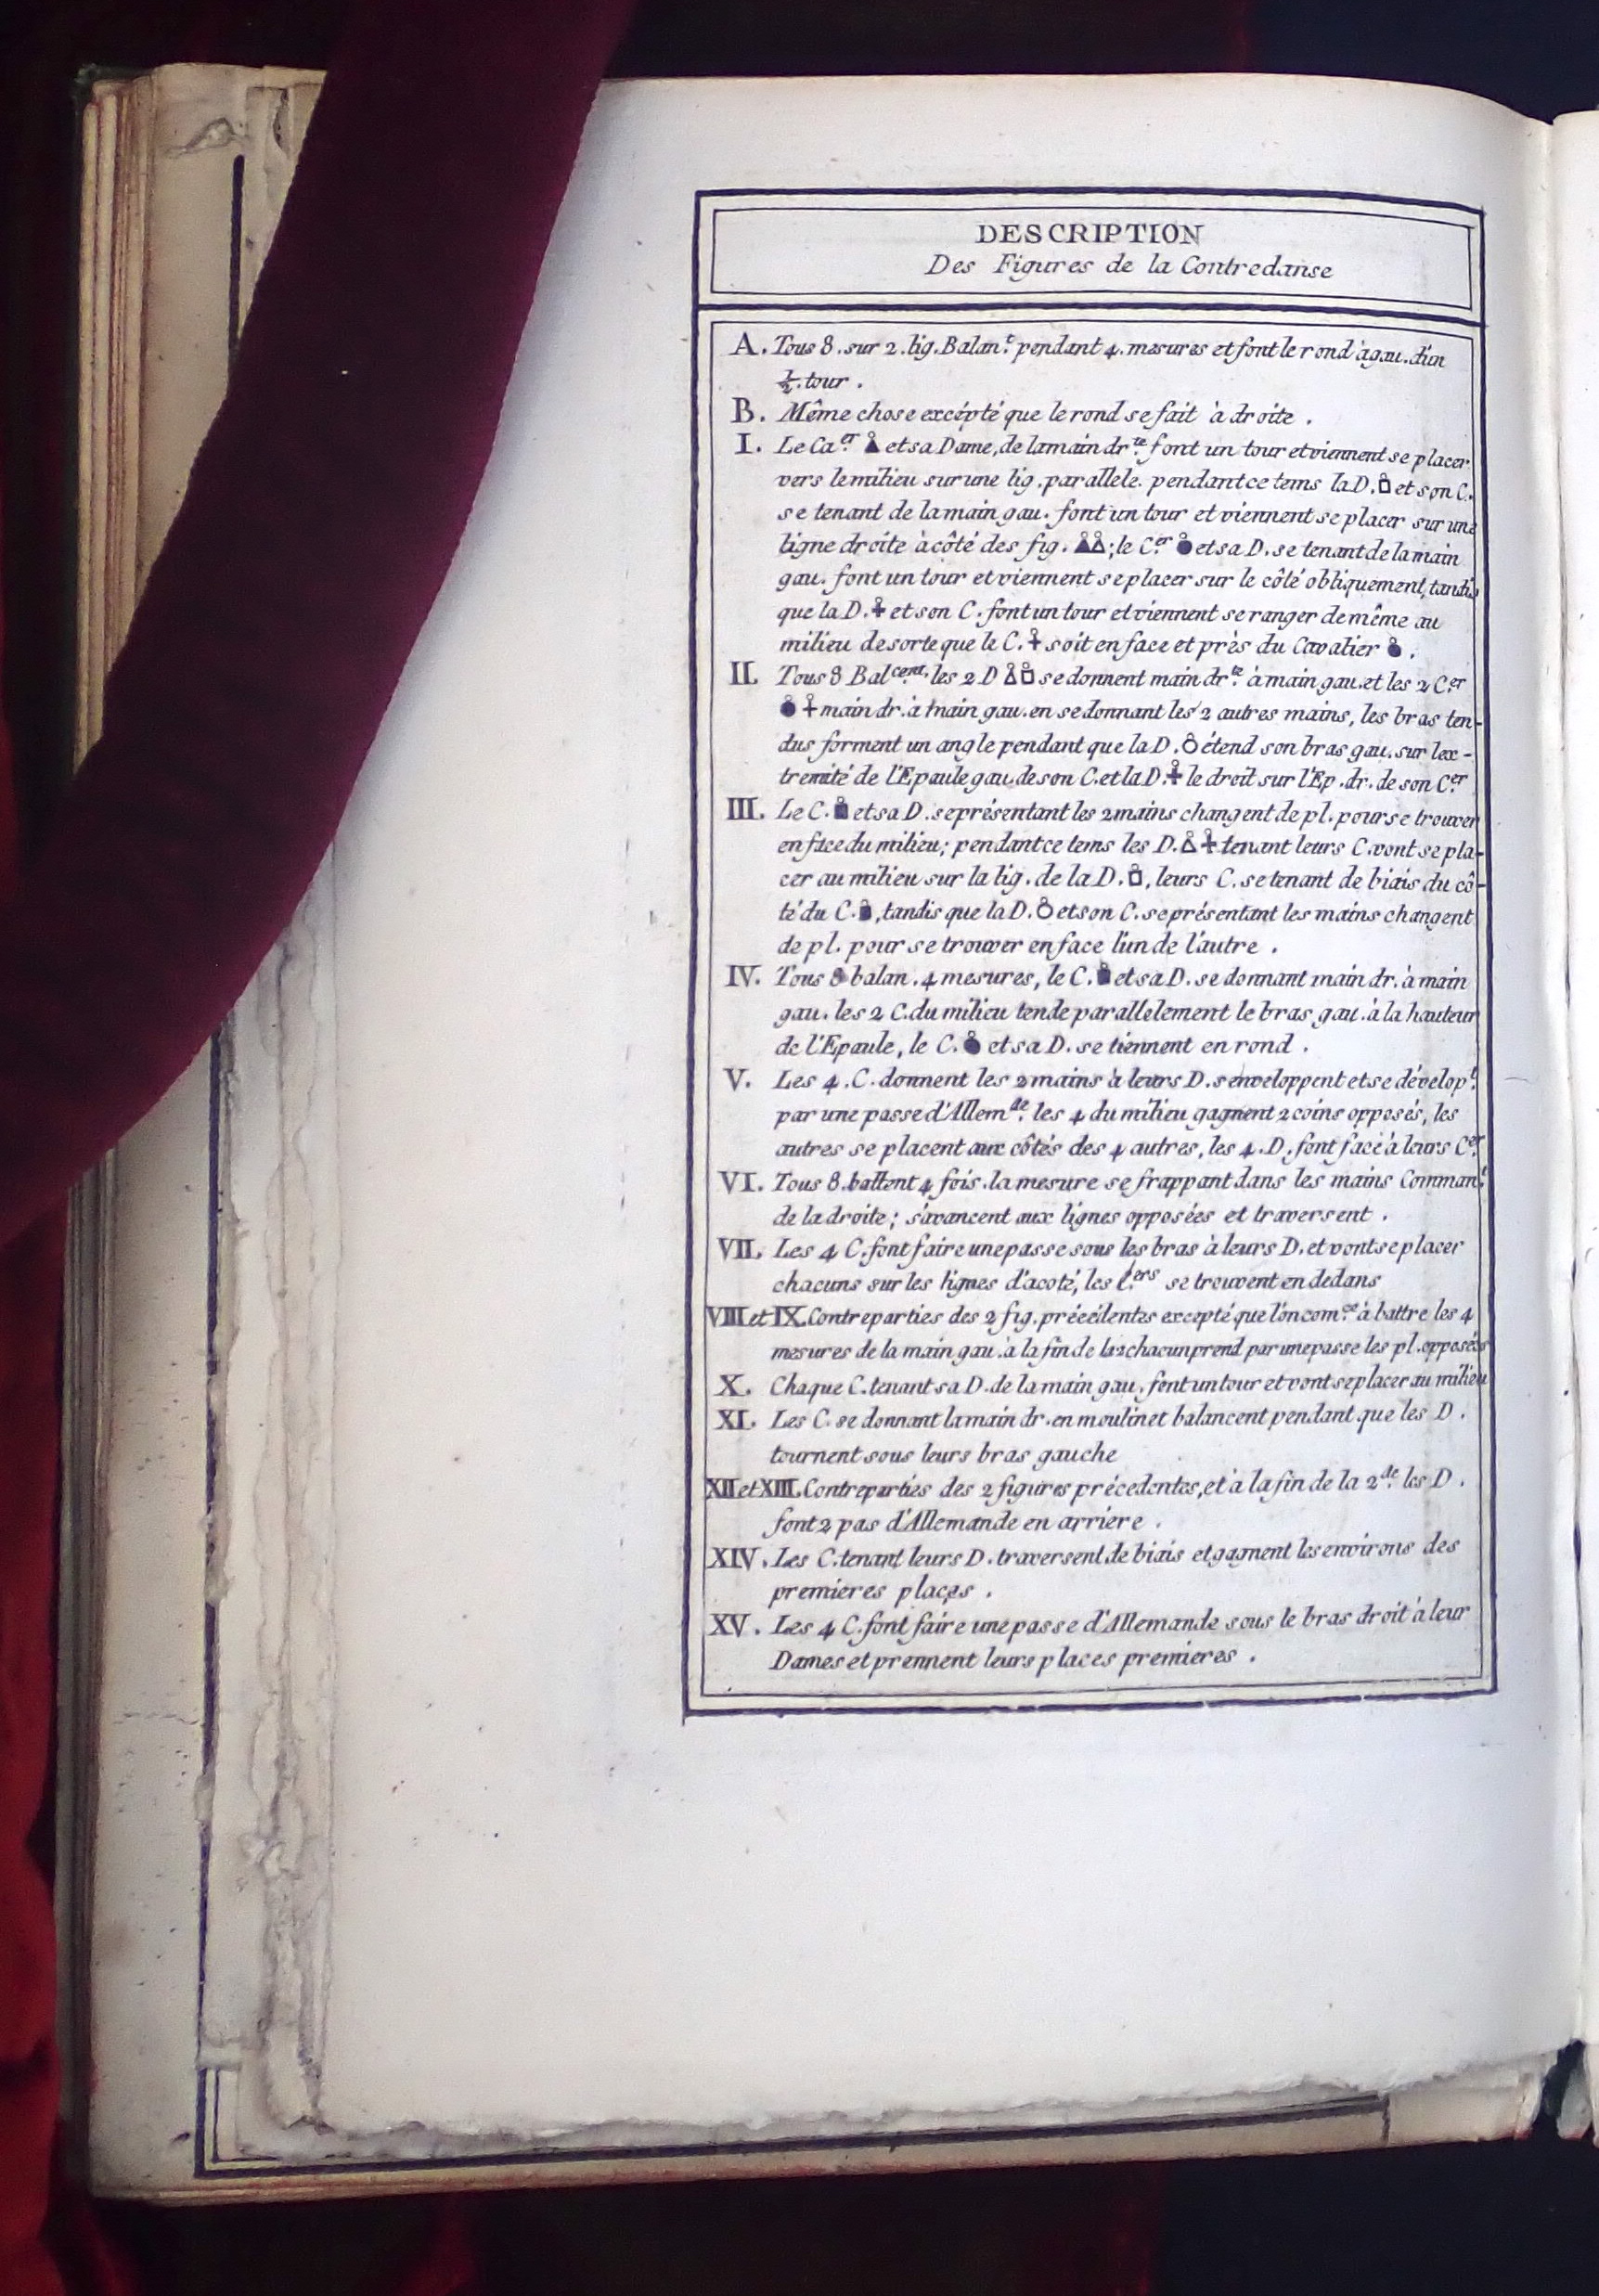 DESCRIPTION
Des Figures de la Contredanse
A. Tous 8. sur 2. lig. Balan.t pendant 4. mesures et font le rond à gau. d'un
½. tour.
B. Même chose excépté que le rond se fait à droite.
I. Le Ca.er et sa Dame, de la main dr.te font un tour et viennent se placer
vers le milieu sur une lig. parallele. pendant ce tems la D. et son C.
se tenant de la main gau. font un tour et viennent se placer sur une
ligne droite à côté des fig. ; le C.er et sa D. se tenant de la main
gau. font un tour et viennent se placer sur le côté obliquement, tandis
que la D. et son C. font un tour et viennent se ranger de même au
milieu de sorte que le C. soit en face et près du Cavalier .
II. Tous 8 Bal.cent, les 2 D se donnent main dr.te à main gau. et les 2 C.er
main dr. à main gau. en se donnant les 2 autres mains, les bras ten-
dus forment un angle pendant que la D. étend son bras gau. sur lex-
tremité de l'Epaule gau. de son C. et la D. le droit sur l'Ep. dr. de son C.er
III. Le C. et sa D. se présentant les 2 mains changent de pl. pour se trouver
en face du milieu; pendant ce tems les D. tenant leurs C. vont se pla-
cer au milieu sur la lig. de la D. , leurs C. se tenant de biais du cô-
té du C. , tandis que la D. et son C. se présentant les mains changent
de pl. pour se trouver en face l'un de l'autre.
IV. Tous 8 balan. 4 mesures, le C. et sa D. se donnant main dr. à main
gau. les 2 C. du milieu tende parallelement le bras gau. à la hauteur
de l'Epaule, le C. et sa D. se tiennent en rond.
V. Les 4. C. donnent les 2 mains à leurs D. s'enveloppent et se dévelop.t
par une passe d'Allem.de les 4 du milieu gagnent 2 coins opposés, les
autres se placent aux côtés des 4 autres, les 4. D. font face à leurs C.er
VI. Tous 8. battent 4 fois la mesure se frappant dans les mains Comman.t
de la droite; s'avancent aux lignes opposées et traversent.
VII. Les 4 C. font faire une passe sous les bras à leurs D. et vont se placer
chacuns sur les lignes d'acoté, les C.ers se trouvent en dedans
VIII et IX. Contreparties des 2 fig. précédentes excepté que l'on com.ce à battre les 4
mesures de la main gau. à la fin de la 2 chacun prend par une passe les pl. opposées
X. Chaque C. tenant sa D. de la main gau. font un tour et vont se placer au milieu
XI. Les C. se donnant la main dr. en moulinet balancent pendant que les D.
tournent sous leurs bras gauche
XII et XIII. Contreparties des 2 figures précedentes, et à la fin de la 2.de les D.
font 2 pas d'Allemande en arriere.
XIV. Les C. tenant leurs D. traversent de biais et gagnent les environs des
premieres places.
XV. Les 4 C. font faire une passe d'Allemande sous le bras droit à leur
Dames et prennent leurs places premieres.